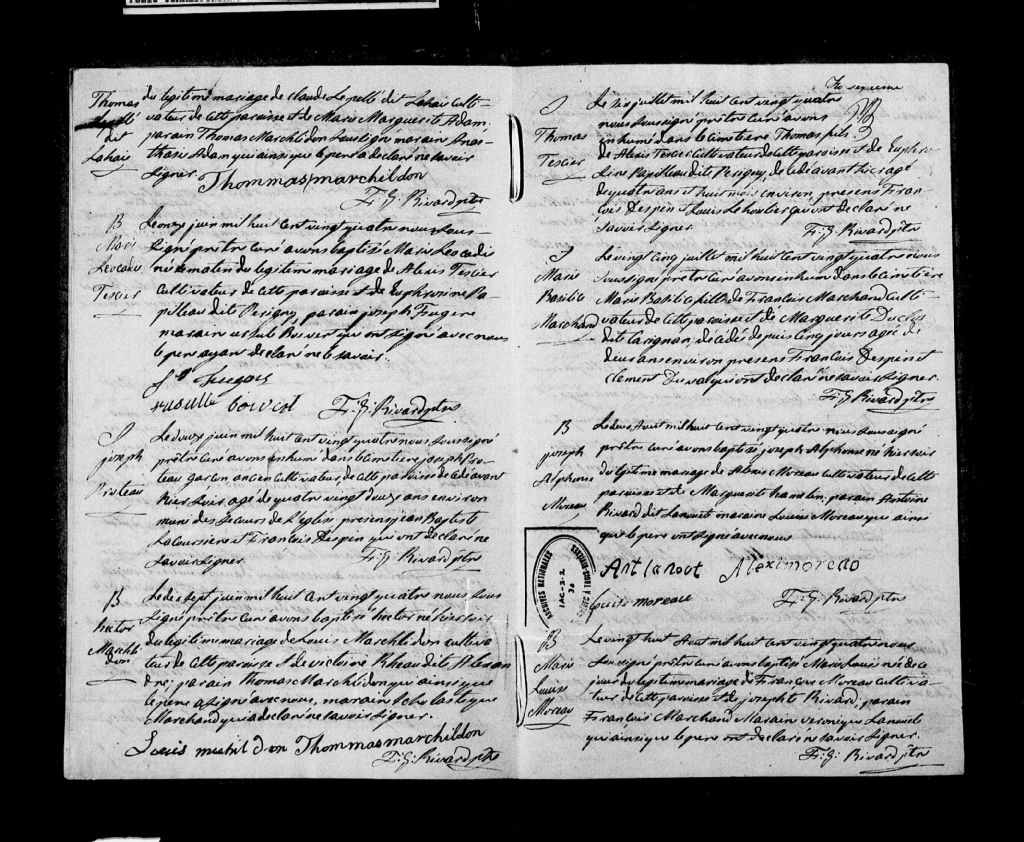 Thomas
Lepellé
dit
Lahais
du legitime mariage de claude Lepellé dit Lahais culti-
vateur de cette paroisse et de Marie Marguerite Adam.
parain Thomas Marchildon soussigné maraine Anas-
thasie Adam qui ainsi que le pere a declaré ne savoir
signer.
Thommas marchildon
F: X: Rivard ptre
B
Marie
Leocadie
Tescier
Le onze juin mil huit cent vingt quatre nous sous-
signé prêtre curé avons baptisé Marie Leocadie
née ce matin du legitime mariage de Alexis Tescier
cultivateur de cette paroisse et de Euphrosine Pa-
pilleau dite Perigny, parain joseph Fugere
maraine ursule Boisvert qui ont signé avec nous
le pere ayant declaré ne le savoir.
Js Fugere
F: X: Rivard ptre
S
joseph
Proteau
Le douze juin mil huit cent vingt quatre nous soussigné
prêtre curé avons inhumé dans le cimetiere joseph Pro-
teau garçon ancien cultivateur, de cette paroisse decedé avant
hier soir agé de quatre vingt douze ans environ
muni des secours de L'eglise, presens jean Baptiste
Lacoursiere et Francois Despin qui ont declaré ne
savoir signer.
F: X: Rivard ptre
B
hector
Marchil
don
Le dix sept juin mil huit cent vingt quatre nous sous
signé prêtre curé avons baptisé hector né hier soir
du legitime mariage de Louis Marchildon cultiva
teur de cette paroisse et de victoire Rheau dite Alexan
dre; parain Thomas Marchildon qui ainsi que
le pere a signé avec nous, maraine Scholastique
Marchand qui a declaré ne savoir signer.
Thommas marchildon
F: X: Rivard ptre
S
Thomas
Tescier
Le six juillet mil huit cent vingt quatre
nous soussigné prêtre curé avons
inhumé dans le cimetiere Thomas fils
de Alexis Tescier cultivateur de cette paroisse et de Euphro
sine Papilleau dite Perigny, decedé avant hier agé
de quatre ans et huit mois environ, presens Fran
cois Despin et Louis Lehoulier qui ont declaré ne
savoir signer.
F: X: Rivard ptre
S
Marie
Basilice
Marchand
Le vingt cinq juillet mil huit cent vingt quatre nous
soussigné prêtre curé avons inhumé dans le cimetiere
Marie Basilice fille de Francois Marchand culti-
vateur de cette paroisse et de Marguerite Duclos
dite Carignan, decedée depuis cinq jours agée de
deux ans environ presens Francois Despin et
clement Duval qui ont declaré ne savoir signer.
F: X: Rivard ptre
B
joseph
Alphonse
Moreau
Le deux Aout mil huit cent vingt quatre nous soussigné
prêtre curé avons baptisé joseph Alphonse né hier soir
du legitime mariage de Alexis Moreau cultivateur de cette
paroisse et de Marguerite hamelin; parain Antoine
Rivard dit Lanouet maraine Louise Moreau qui ainsi
que le pere ont signé avec nous
Ant lanoet
Alexi moreau
Louise moreau
F: X: Rivard ptre
ARCHIVES NATIONALES
B
Marie
Louise
Moreau
Le vingt huit Aout mil huit cent vingt quatre nous
soussigné prêtre curé avons baptisé Marie Louise née de ce
jour du legitime mariage de Francois Moreau cultiva-
teur de cette paroisse et de josephte Rivard, parain
Francois Marchand Maraine veronique Lanouet
qui ainsi que le pere ont declaré ne savoir signer.
F: X: Rivard ptre